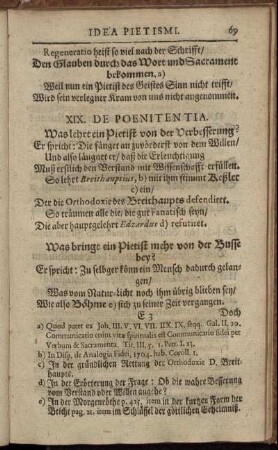 IDEA PIETISMI. 69
Regeneratio heist so viel nach der Schrifft/
Den Glauben durch das Wort und Sacrament
bekommen, a)
Weil nun ein Pietist des Geistes Sinn nicht trifft/
Wird sein verlegner Kram von uns nicht angenommen.
XIX. DE POENITENTIA.
Was lehrt ein Pietist von der Verbesserung?
Er spricht: Die fänget an zuvörderst von dem Willen/
Und also läugnet er/ daß die Erleuchtigung
Muß erstlich den Verstand mit Wissenschafft erfüllen.
So lehrt Breithauptius, b) mit ihm stimmt Keßler
c) ein/
Der die Orthodoxie des Breithaupts defendirt.
So träumen alle die/ die gut Fanatisch seyn/
Die aber hauptgelehrt Edzardus d) refutiret.
Was bringt ein Pietist mehr von der Busse
bey?
Er spricht: Zu selbger könn ein Mensch dadurch gelan-
gen/
Was vom Natur-Licht noch ihm übrig blieben sey/
Wie also Böhme e) sich zu seiner Zeit vergangen.
E 3 Doch
a) Quod patet ex Joh. III. V. VI. VII. IIX. IX. seqq. Gal. II, 20.
Communicatio enim vitæ spiritualis est Communicatio fidei per
Verbum & Sacramenta. Tit. III, 5. 1. Petr. I. 23.
b) In Disp. de Analogia Fidei, 1704. hab. Coroll. 1.
c) In der gründlichen Rettung der Orthodoxie D. Breit-
haupts.
d) In der Erörterung der Frage: Ob die wahre Besserung
vom Verstand oder Willen angehe?
e) In der Morgenröthe p. 425. und in der kurtzen Form der
Beicht pag. 21. num im Schlüssel der göttlichen Geheimniß.